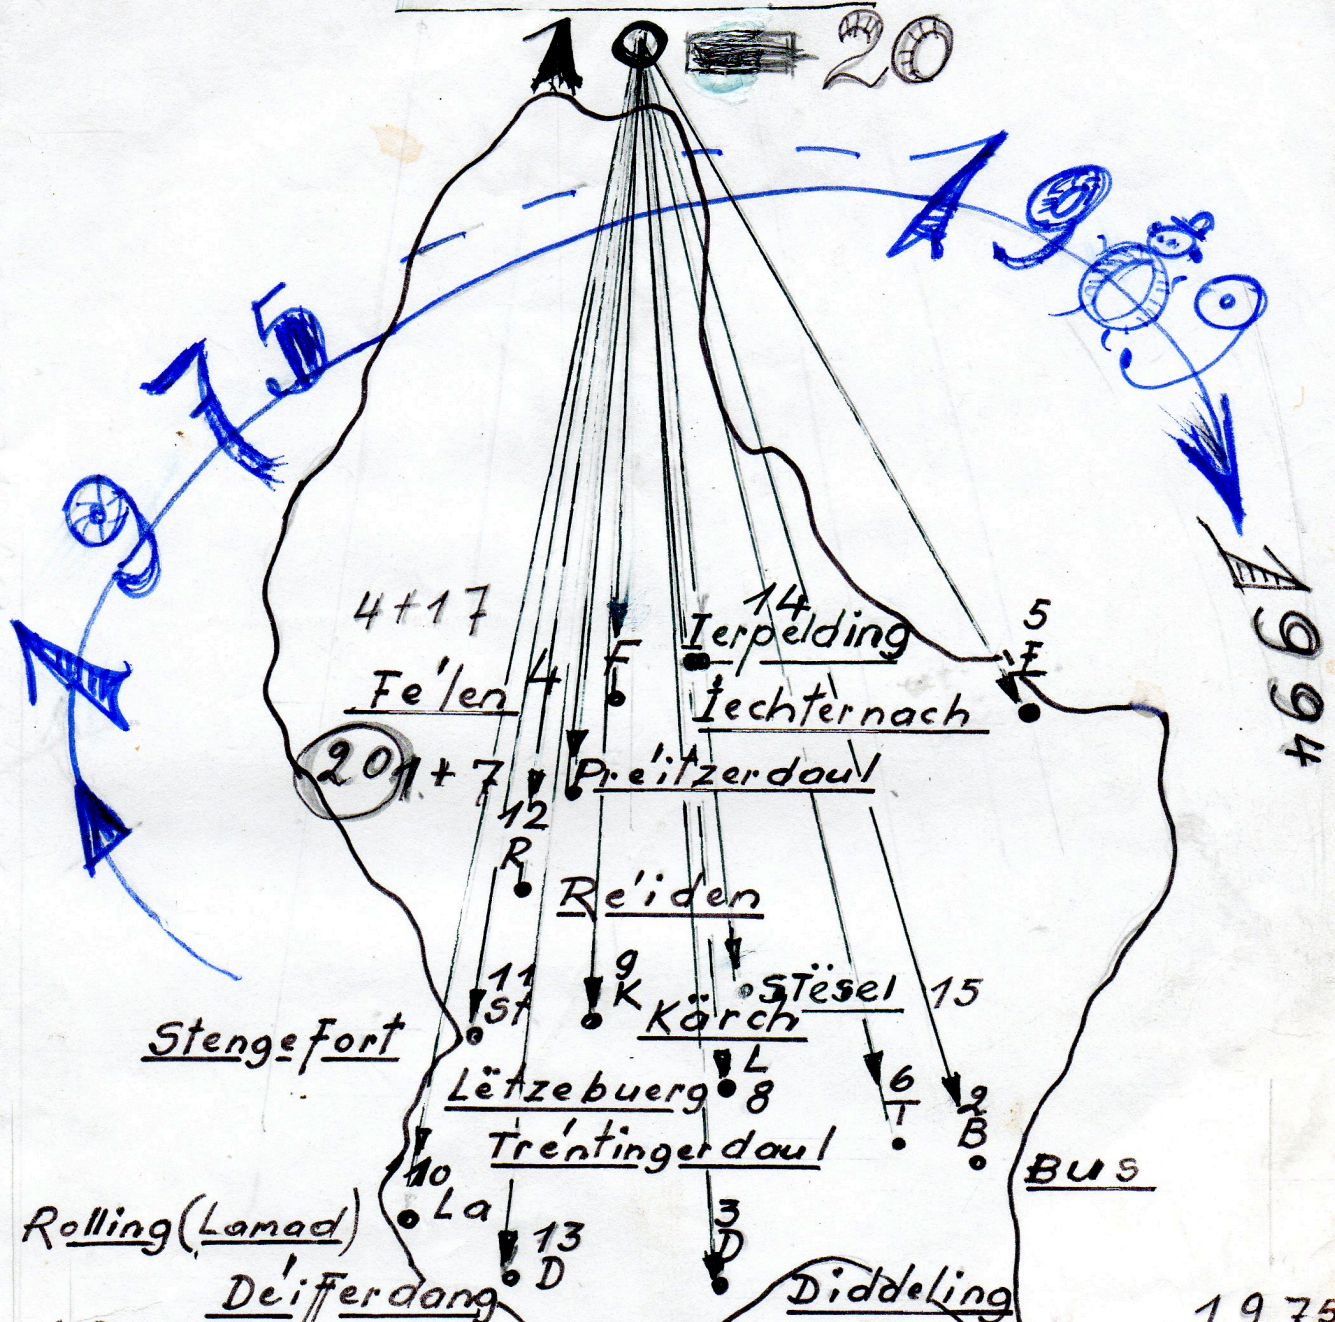 1 20
1975 1980
1994
4+17
14
Ierpelding
5
F
E
Fe'len 4
Iechternach
20 1+7
Pre'itzerdaul
12
R
Re'iden
11
St
9
K
Stësel 15
Kärch
Stengefort
L
8
Lëtzebuerg
6
T
2
B
Tre'ntingerdaul
Bus
10
La
Rolling (Lamad)
3
D
13
D
De'ifferdang
Diddeling
1975